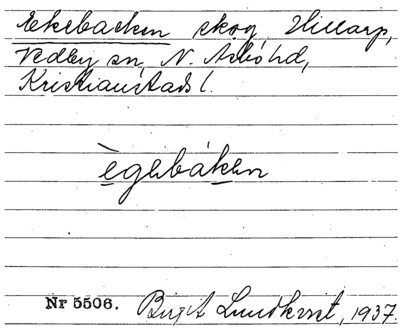 Ekebacken skog, Hillarp,
Vedby sn, N. Åsbo hd,
Kristianstads l.
ègebáken
Nr 5506. Birgit Lundkvist, 1937.